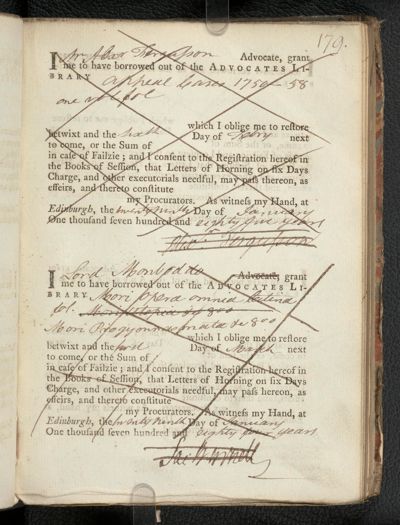 179.
I Mr Alexr Fergusson Advocate, grant
me to have borrowed out of the ADVOCATES LI-
BRARY appeal Cases 1759 - 58
one vol fol
which I oblige me to restore
betwixt and the sixth Day of Febry next
to come, or the Sum of
in case of Failzie; and I consent to the Registration hereof in
the Books of Session, that Letters of Horning on six Days
Charge, and other executorials needful, may pass thereon, as
effeirs, and thereto constitute
my Procurators. As witness my Hand, at
Edinburgh, the twenty ninth Day of January
One thousand seven hundred and eighty five years
Alexr Fergusson
I Lord Monboddo Advocate, grant
me to have borrowed out of the ADVOCATES LI-
BRARY Mori opera omnia Latina
fol.
Mori
which I oblige me to restore
betwixt and the first Day of March next
to come, or the Sum of
in case of Failzie; and I consent to the Registration hereof in
the Books of Session, that Letters of Horning on six Days
Charge, and other executorials needful, may pass hereon, as
effeirs, and thereto constitute
my Procurators. As witness my Hand, at
Edinburgh, the twenty ninth Day of January
One thousand seven hundred and eighty five years
Jas Burnett